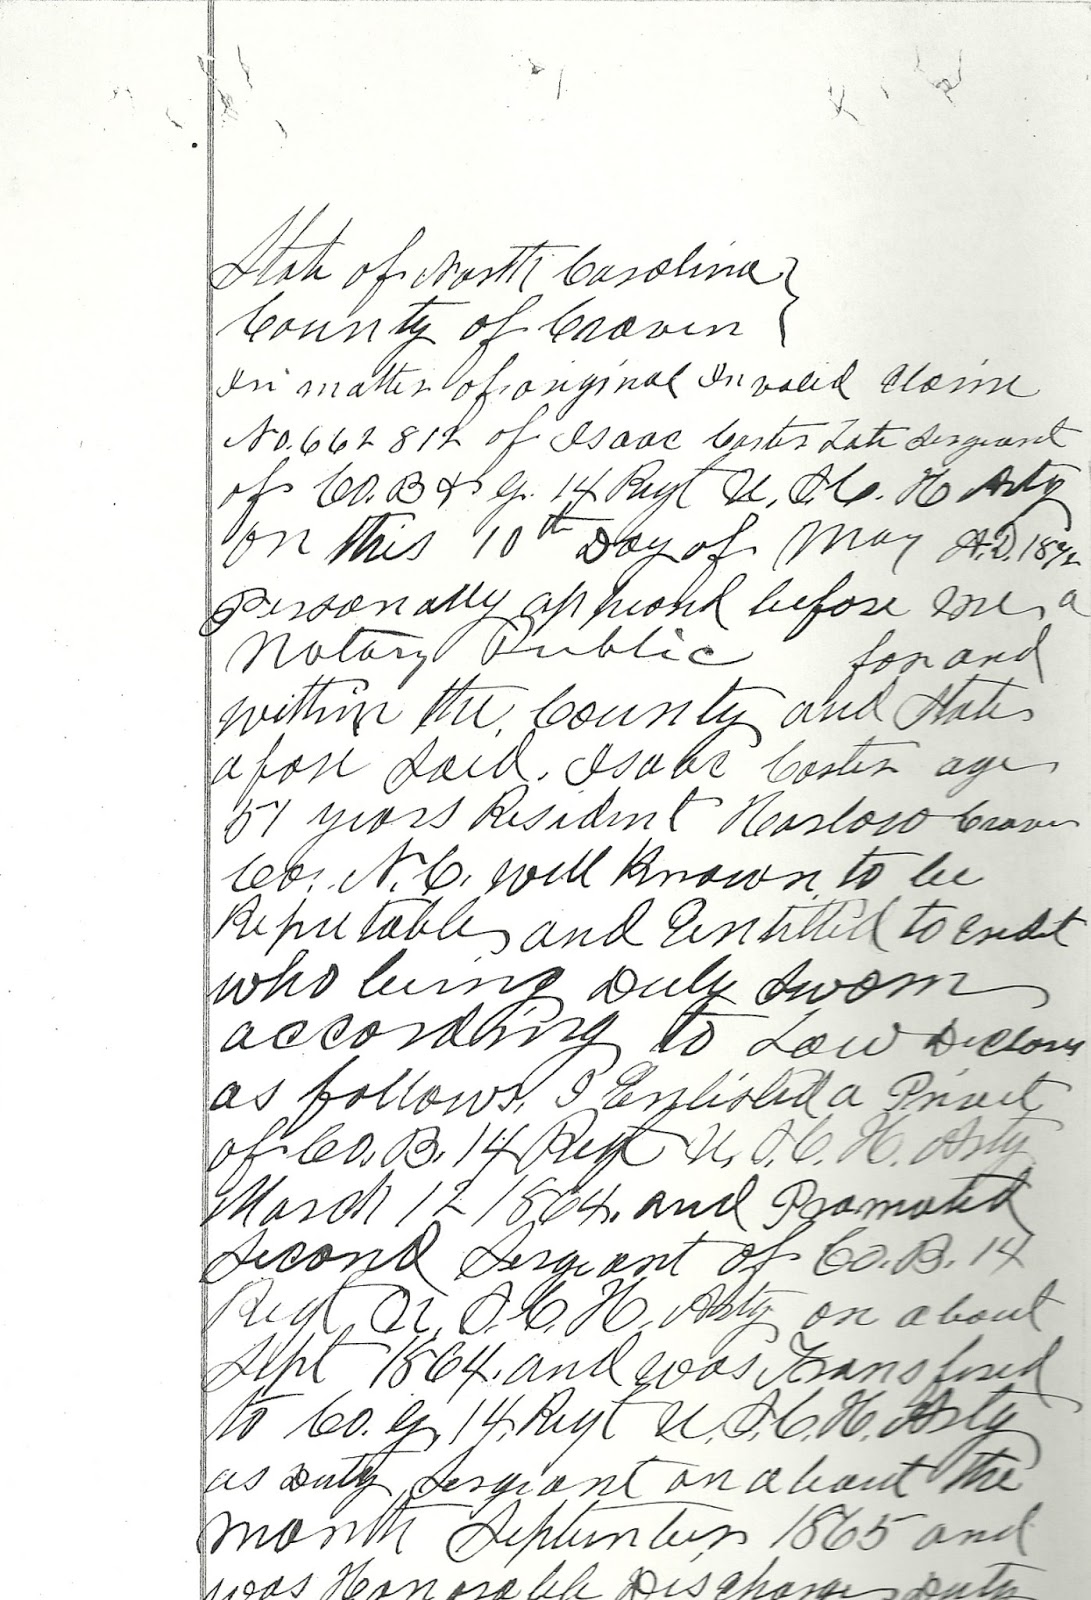 State of North Carolina }
County of Craven }
In matter of original Invalid Claim
No. 662812 of Isaac Carter Late Sergeant
of Co. B & G. 14 Regt U.S.C.H. Arty
on this 10th Day of May A.D. 1892
Personally appeard before me, a
Notary Public for and
within the County and State
afore Said. Isaac Carter age
51 years Resident Harlow Craven
Co. N.C. well Known to be
Reputable and Entitled to credit
who being Duly Sworn
according to Law Declars
as follows, I Enlisted a Privet
of Co. B. 14 Regt U.S.C.H. Arty
March 12 1864. and Promoted
Second Sergeant of Co. B. 14
Regt U.S.C.H. Arty on about
Sept 1864. and was Transfered
to Co. G. 14. Regt U.S.C.H. Arty
as Duty Sergeant on about the
month September 1865 and
was Honorable Discharge Duty